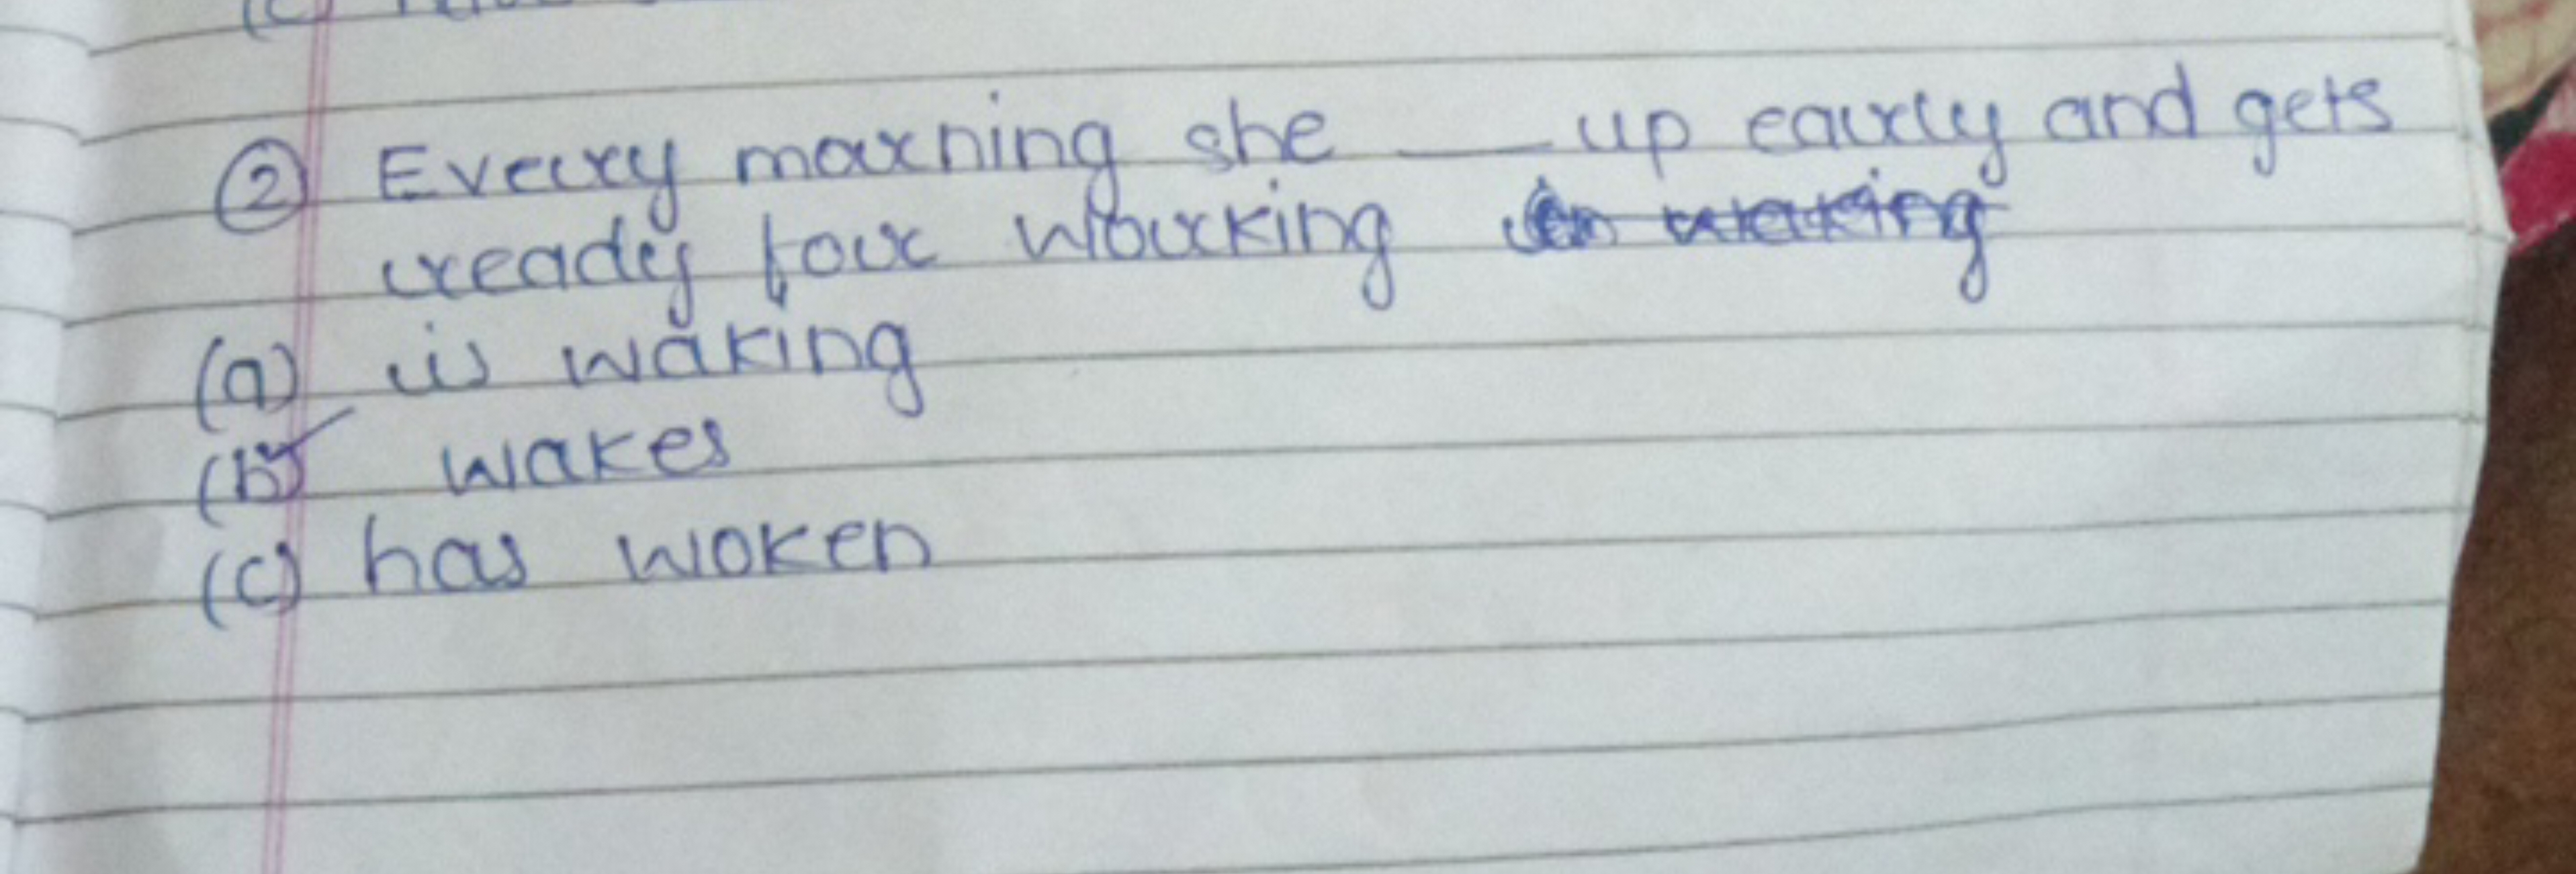 ② Every morning she ___ up early and gets
ready for working
(a) is waking
(b) wakes
(c) has woken